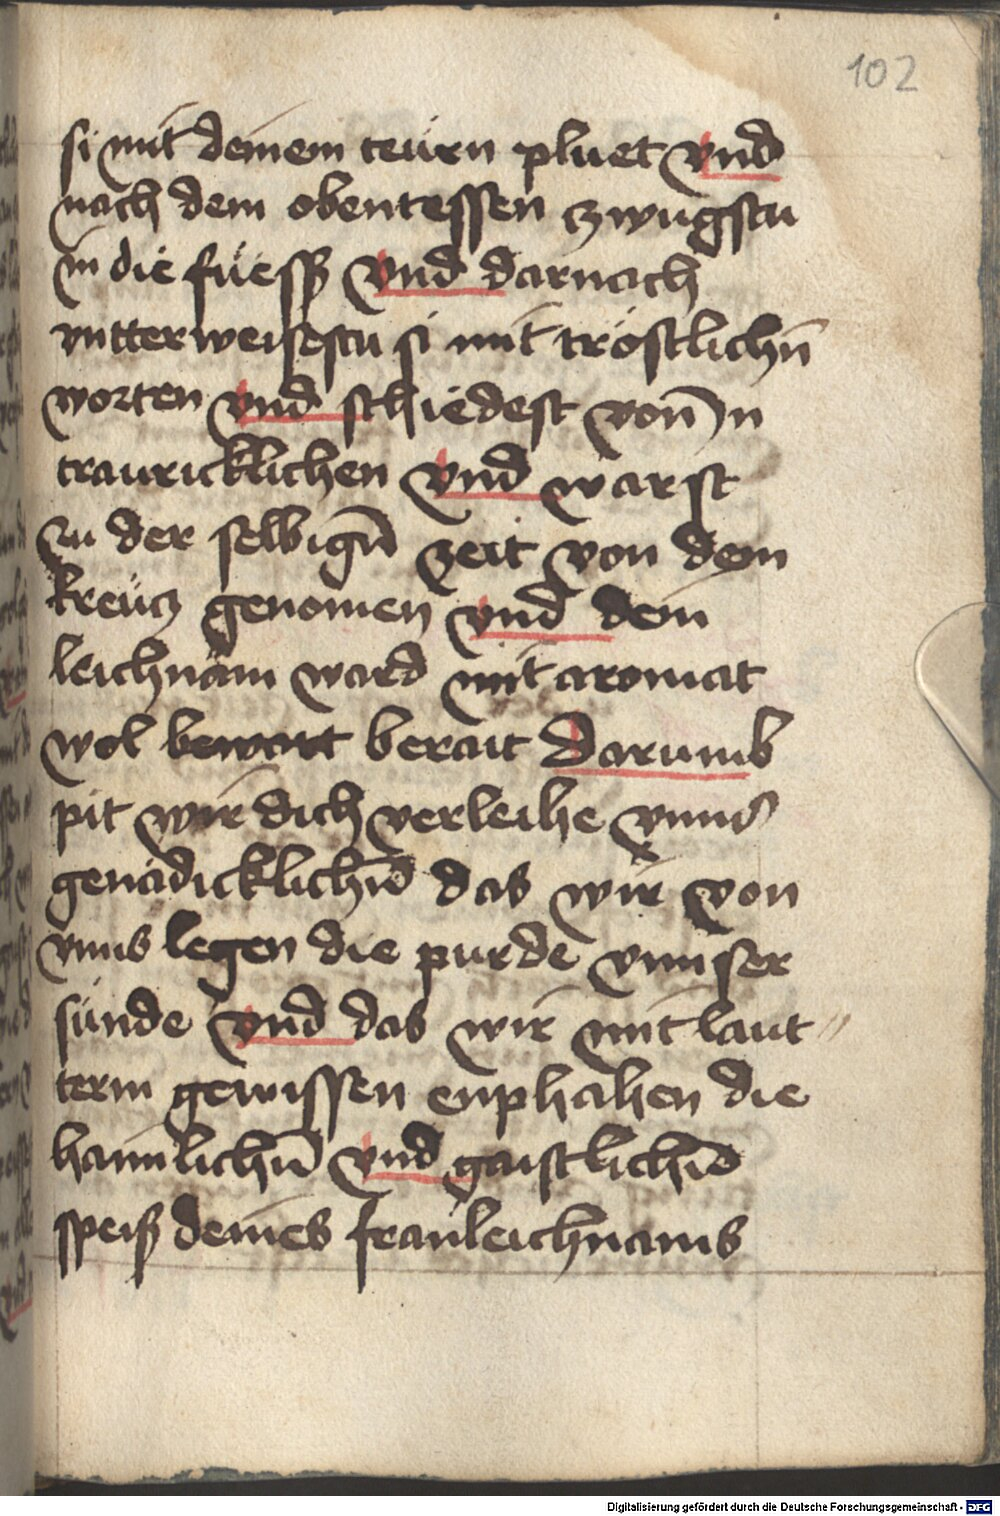 102
si mit deinem teurn pluet vnd
nach dem obentessen zwugstu
in die füessz vnd darnach
vntterweisestu si mit tröstlichn̄
worten vnd schiedest von in
trauricklichen vnd warst
zu der selbign̄ zeit von dem
kreücz genomen vnd dein
leichnam ward mit aromat
wol bewart berait Darumb
pit wir dich verleihe vnns
genädicklichn̄ das wir von
vnns legen die purde vnnser
sünde vnd das wir mit laut〃
term gewissen enphahen die
haimlichn̄ vnd gaistlichn̄
speisz deines franleichnams
Digitalisierung gefördert durch die Deutsche Forschungsgemeinschaft - DFG